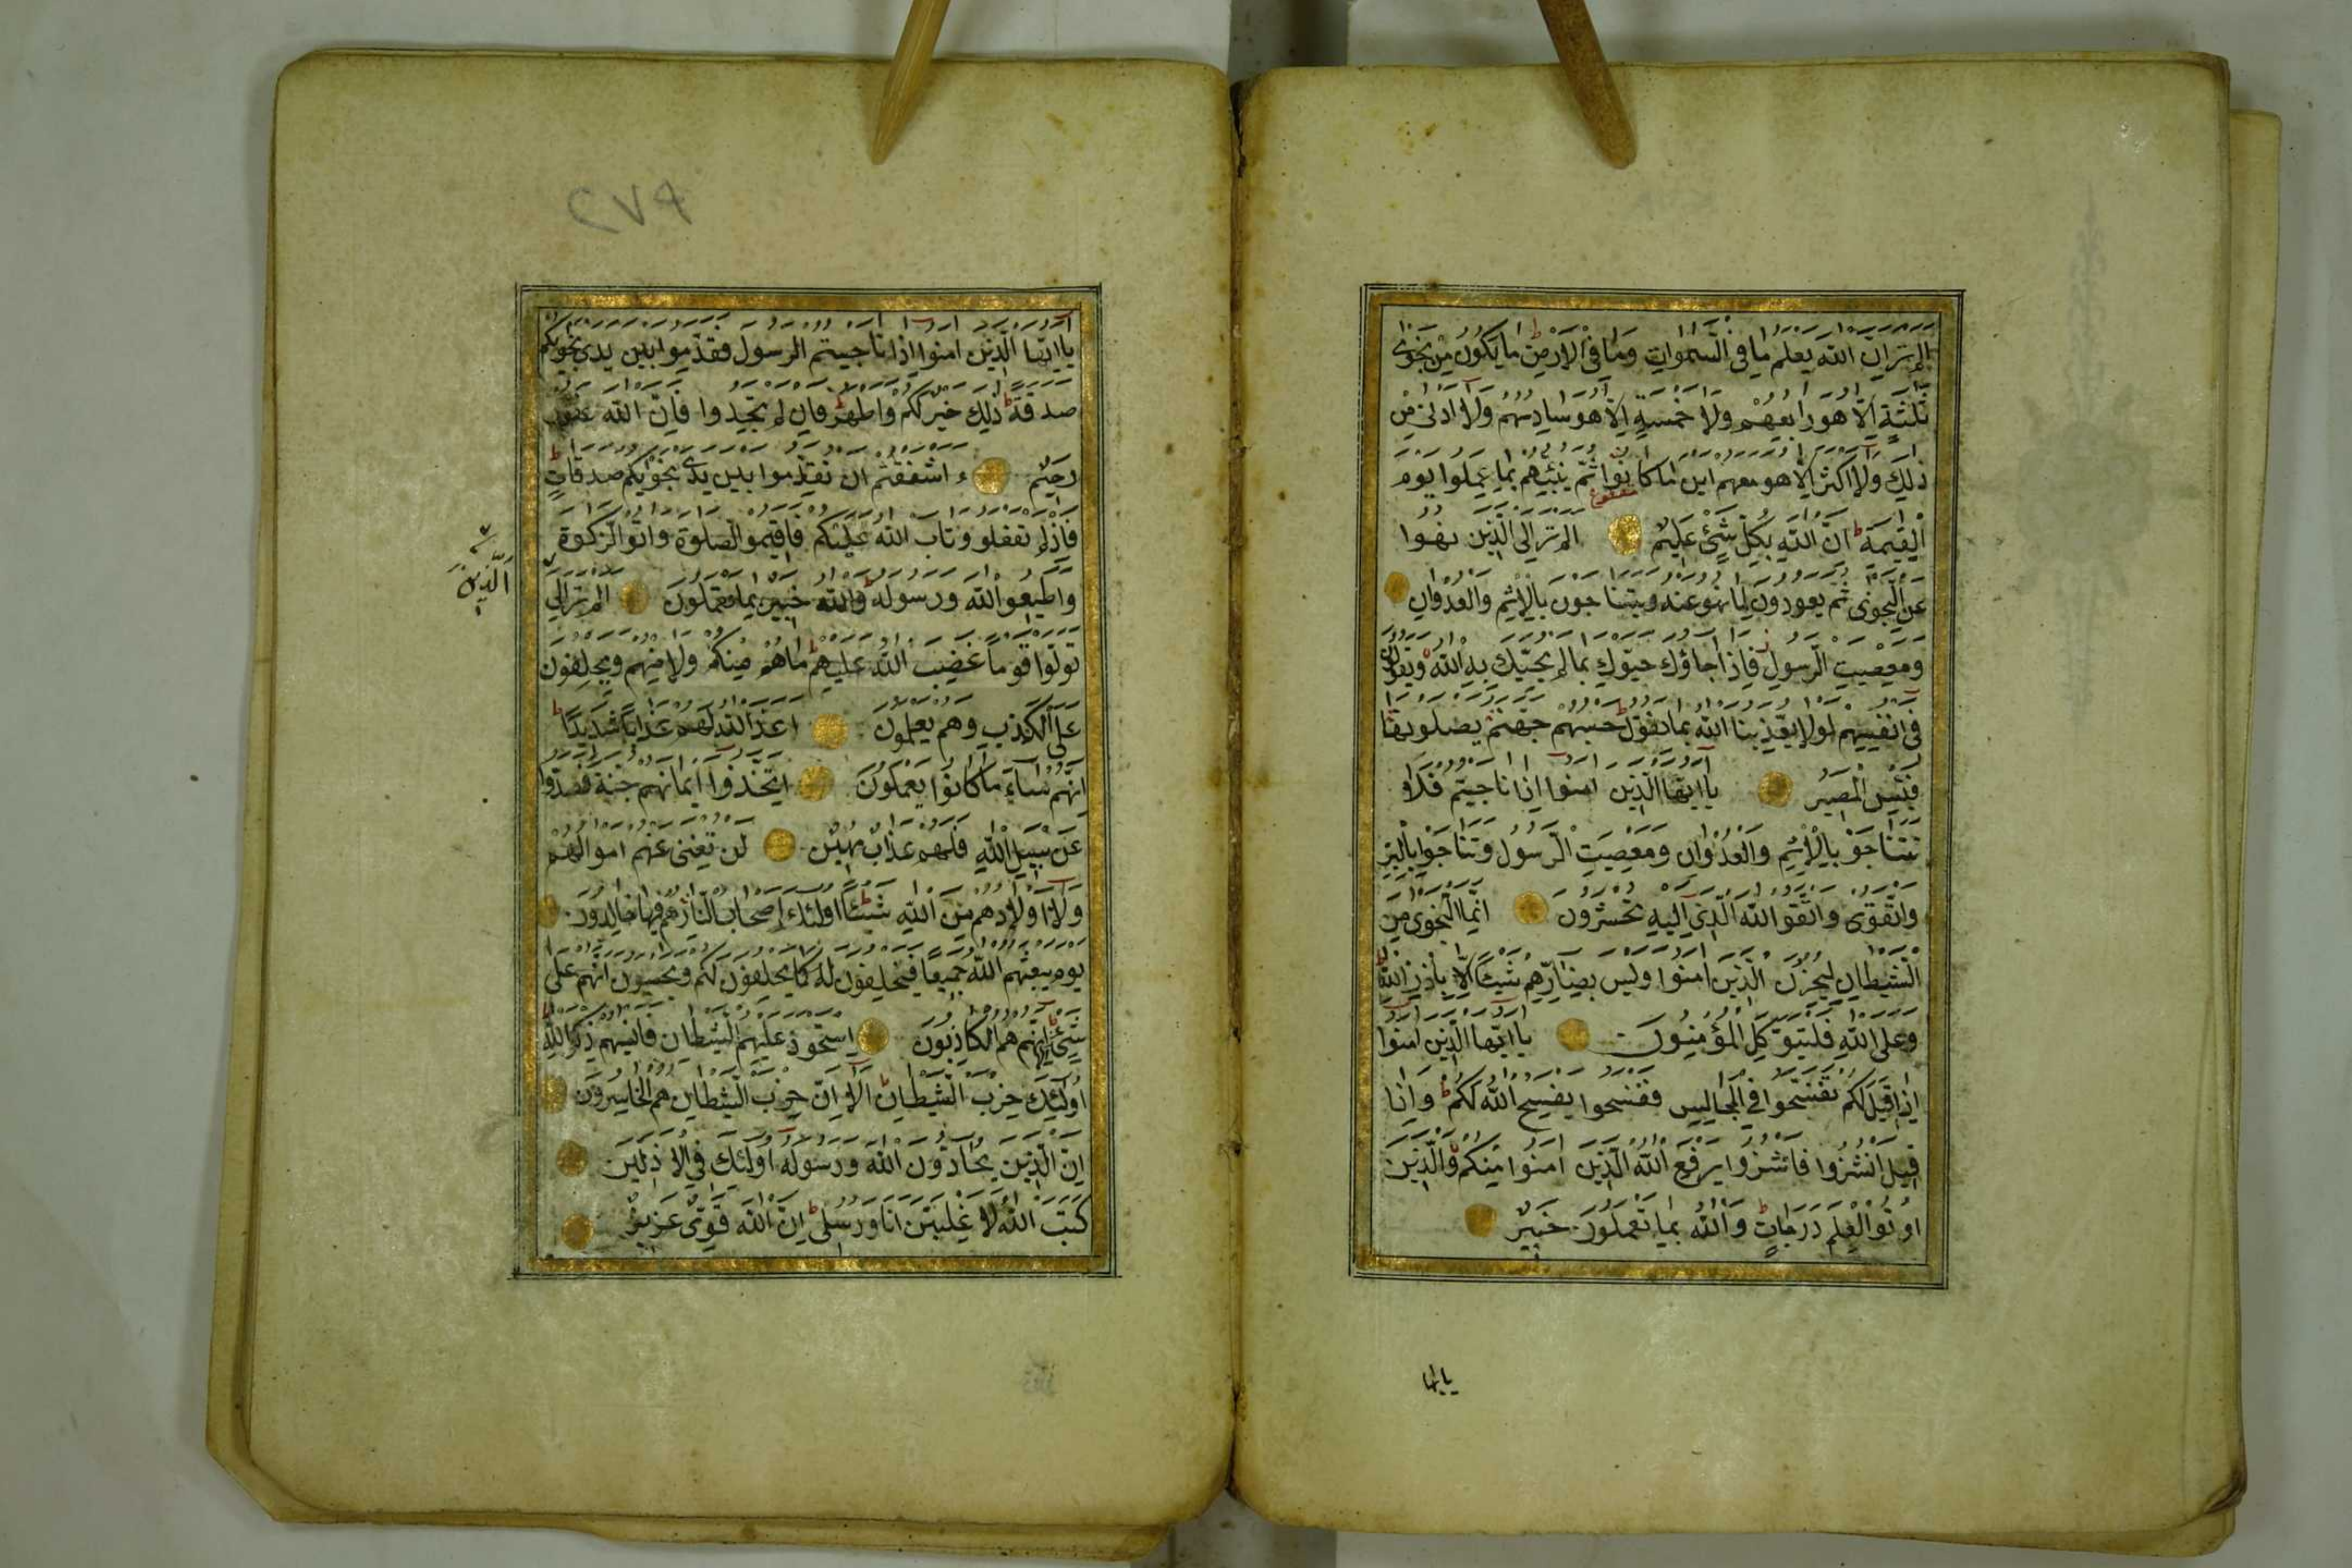 الم تر ان الله يعلم ما في السموات وما في الارض ما يكون من نجوى
ثلثة الا هو رابعهم ولا خمسة الا هو سادسهم ولا ادنى من
ذلك ولا اكثر الا هو معهم اين ما كانوا ثم ينبئهم بما عملوا يوم
القيمة ان الله بكل شئ عليم الم تر الى الذين نهوا
عن النجوى ثم يعودون لما نهو عنه ويتناجون بالاثم والعدوان
ومعصيت الرسول فاذا جاؤك حيوك بما لم يحيك به الله ويقولون
في انفسهم لولا يعذبنا الله بما نقول حسبهم جهنم يصلونها
فبئس المصير يا ايها الذين امنوا اذا ناجيتم فلا
تتناجو بالاثم والعدوان ومعصيت الرسول وتناجوا بالبر
والتقوى واتقو الله الذي اليه تحشرون انما النجوى من
الشيطان ليحزن الذين امنوا وليس بضارهم شيئا الا باذن الله
وعلى الله فليتوكل المؤمنون يا ايها الذين امنوا
اذا قيل لكم تفسحوا في المجاليس فافسحوا يفسح الله لكم واذا
قيل انشزوا فانشزوا يرفع الله الذين امنوا منكم والذين
اوتوا العلم درجات والله بما تعملون خبير
يا ايها
٢٧٩
يا ايها الذين امنوا اذا ناجيتم الرسول فقدموا بين يدي نجويكم
صدقة ذلك خير لكم واطهر فان لم تجدوا فان الله غفور
رحيم ء اشفقتم ان تقدموا بين يدي نجويكم صدقات
فاذ لم تفعلو وتاب الله عليكم فاقيمو الصلوة واتو الزكوة
واطيعو الله ورسوله والله خبير بما تعملون الم تر الى
الذين
تولوا قوما غضب الله عليهم ما هم منكم ولا منهم ويحلفون
على الكذب وهم يعلمون اعد الله لهم عذابا شديدا
انهم ساء ما كانوا يعملون اتخذوا ايمانهم جنة فصدوا
عن سبيل الله فلهم عذاب مهين لن تغنى عنهم اموالهم
ولا اولادهم من الله شيئا اولئك اصحاب النار هم فيها خالدون
يوم يبعثهم الله جميعا فيحلفون له كما يحلفون لكم ويحسبون انهم على
شئ الا انهم هم الكاذبون استحوذ عليهم الشيطان فانسيهم ذكر الله
اولئك حزب الشيطان الا ان حزب الشيطان هم الخاسرون
ان الذين يحادون الله ورسوله اولئك في الاذلين
كتب الله لا غلبن انا ورسلى ان الله قوى عزيز